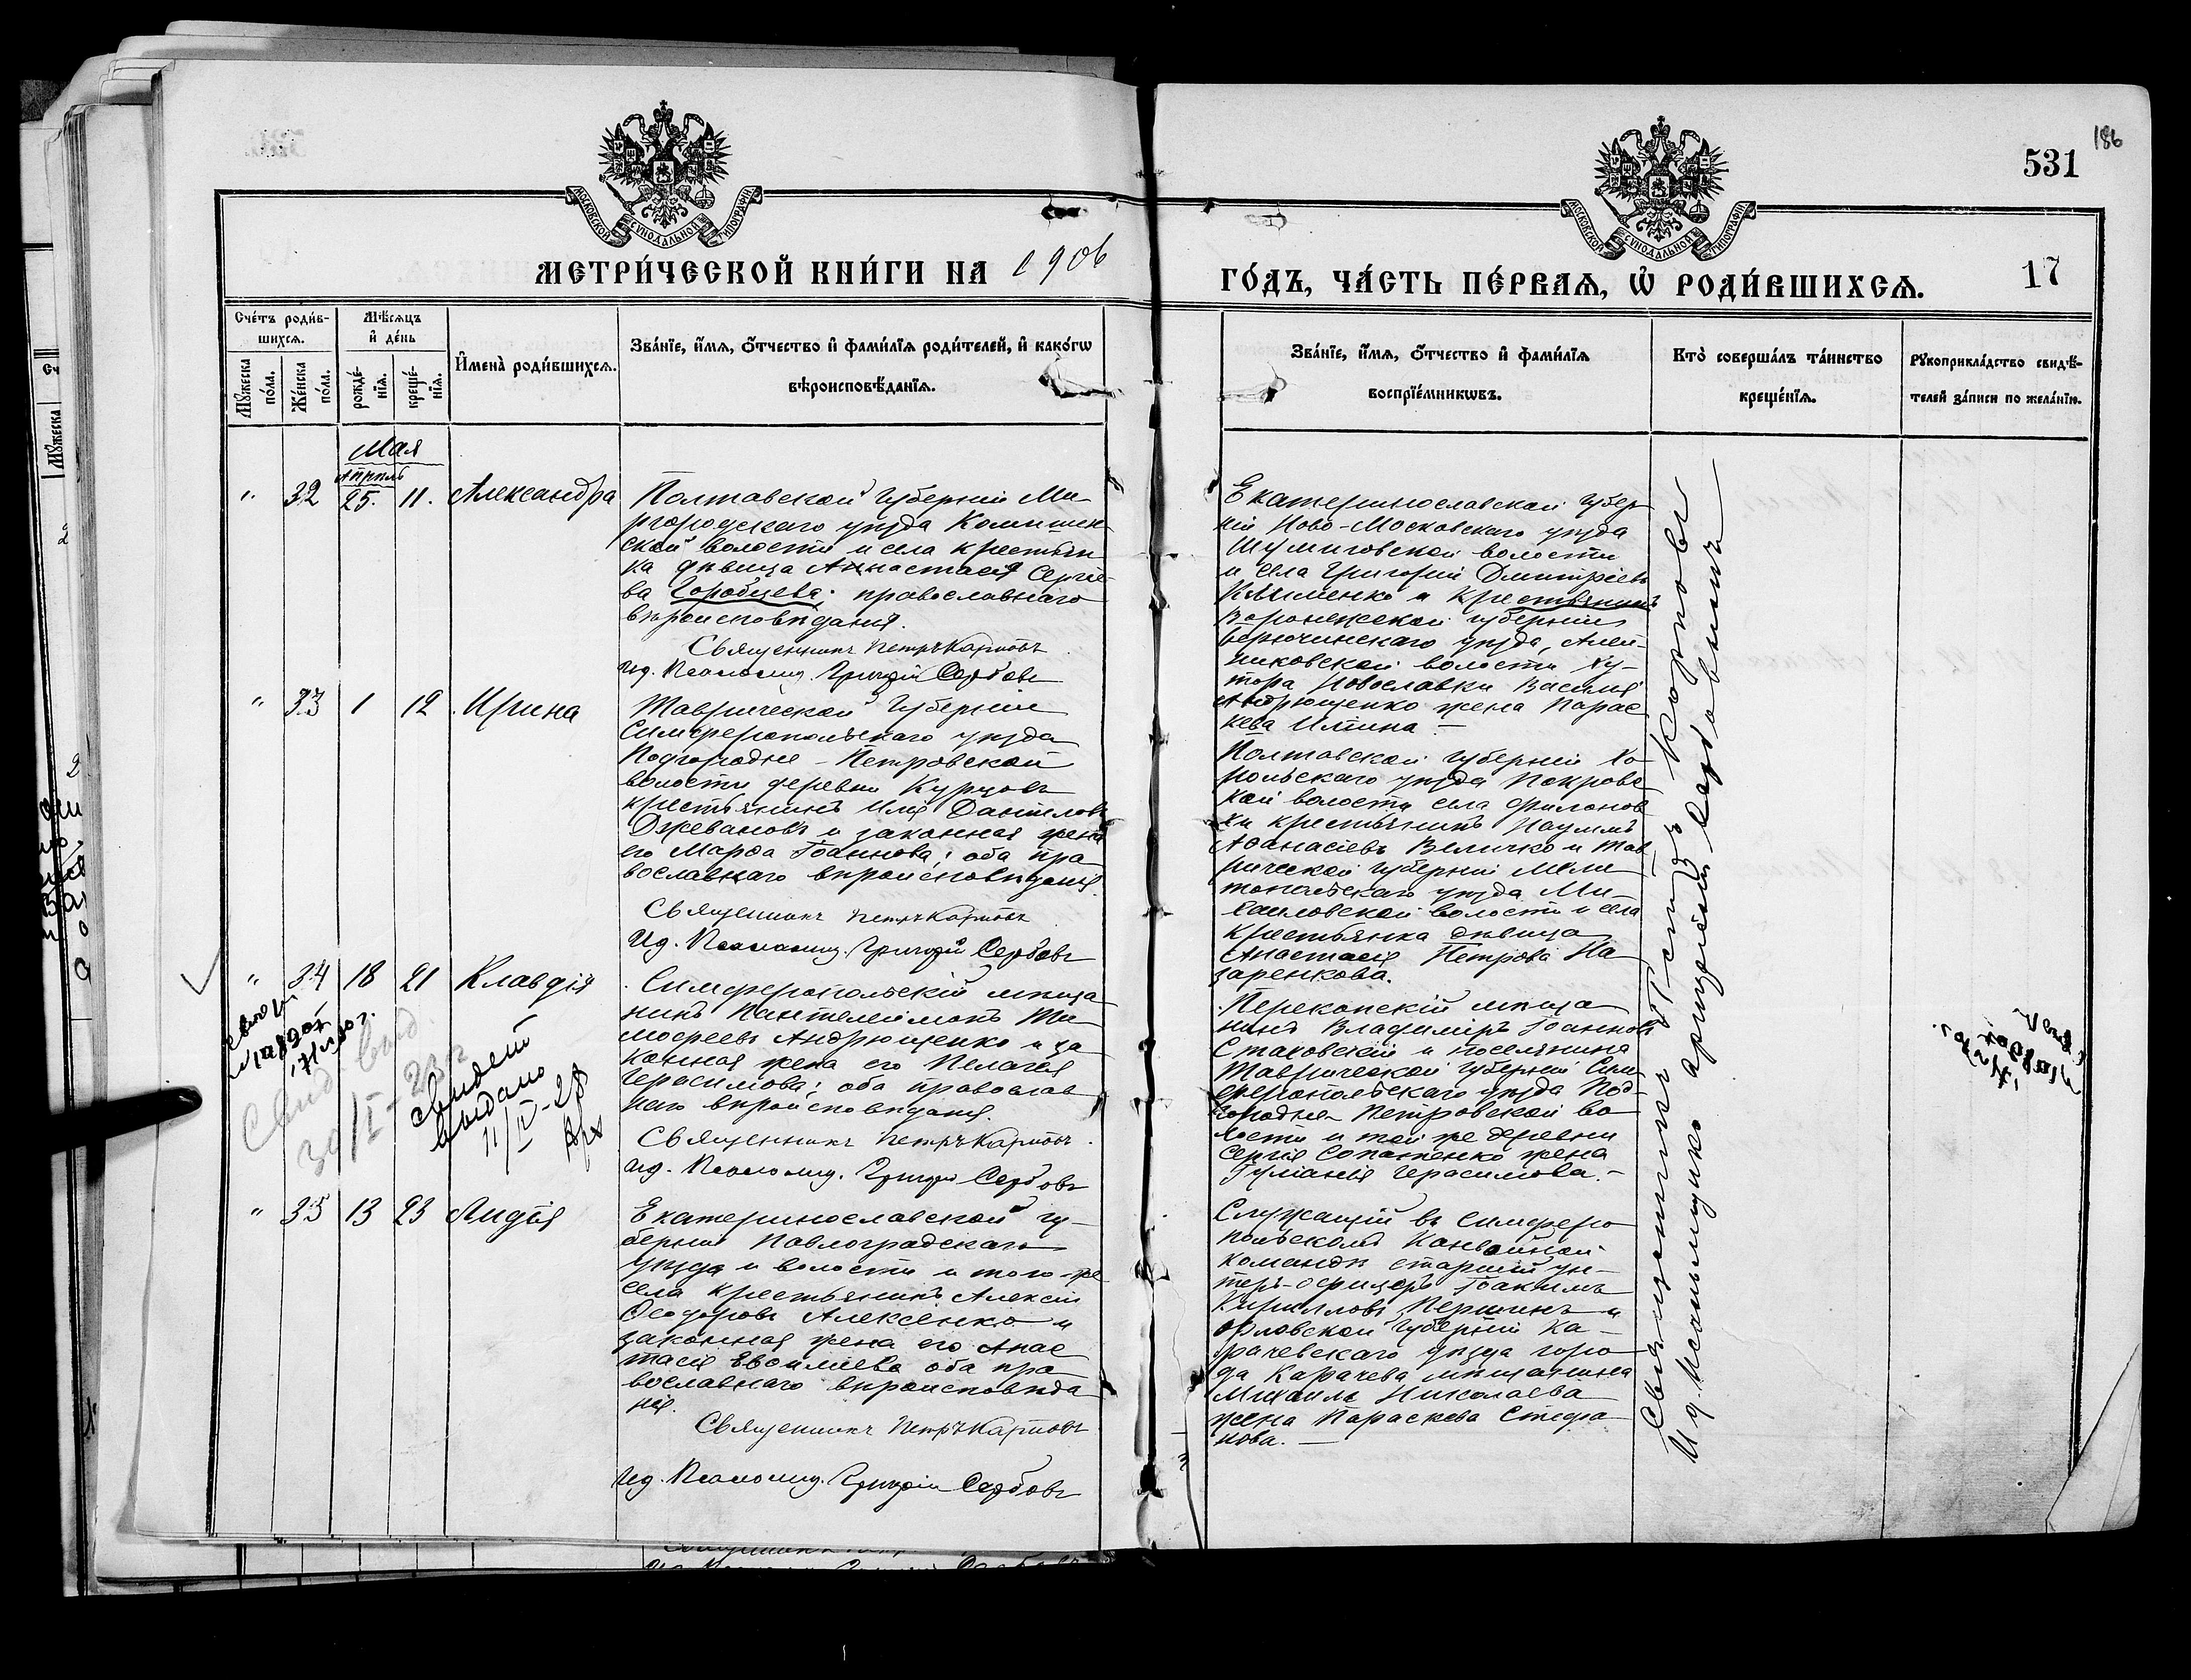 186
531
17
МОСКОВСКОЙ СѴНОДАЛЬНОЙ ТИПОГРАФІИ
МОСКОВСКОЙ СѴНОДАЛЬНОЙ ТИПОГРАФІИ
МЕТРИ́ЧЕСКОЙ КНИ́ГИ НА 1906
ГО́ДЪ, ЧА́СТЬ ПЕ́РВАѦ, Ѽ РОДИ́ВШИХСѦ.
Сче́тъ роди́в-
шихсѧ.
Мꙋжеска
по́ла.
Же́нска
по́ла.
Мѣ́сѧцъ
и҆ де́нь
рожде́-
нїѧ.
креще́-
нїѧ.
И҆мена̀ роди́вшихсѧ.
Зва́нїе, и҆́мѧ, ѻ҆́тчество и҆ фами́лїѧ роди́телей, и҆ како́гѡ
вѣроисповѣ́данїѧ.
Зва́нїе, и҆́мѧ, ѻ҆́тчество и҆ фами́лїѧ
воспрїе́мникѡвъ.
Кто̀ соверша́лъ та́инство
креще́нїѧ.
Рꙋкоприкла́дство свидѣ́-
телей за́писи по жела́нїю.
Мая
Апрѣль
" 32 25. 11. Александра
Полтавской губерніи Ми-
ргородскаго уѣзда Комишан
ской волости и села крестьян
ка дѣвица Анастасія Сергіе-
ва Горобцева; православнаго
вѣроисповѣданія.
Священникъ Петръ Карповъ
Ид. Псаломщ. Григорій Сербовъ
Екатеринославской губер
ніи Ново-Московскаго уѣзда
волости
и села Григорій Дмитріевъ
Клименко и крестьянинъ
Воронежской губерніи
Бирюченскаго уѣзда, Алей-
никовской волости ху-
тора Новославки Василія
Андрющенко жена Парас
кева Ильина.—
" 33 1 12 Ирина
Таврической губерніи
Симферопольскаго уѣзда
Подгородне-Петровской
волости деревни Курцовъ
крестьянинъ Илія Даніиловъ
Джевановъ и законная жена
его Марѳа Іоаннова; оба пра
вославнаго вѣроисповѣданія.
Священникъ Петръ Карповъ
Ид. Псаломщ. Григорій Сербовъ
Полтавской губерніи Хо
рольскаго уѣзда Покровс
кой волости села Филонов
ки крестьянинъ Наумъ
Аѳанасіевъ Величко и Тав
рической губерніи Мели
топольскаго уѣзда Ми-
хайловской волости и села
крестьянка дѣвица
Анастасія Петрова На
заренкова.
" 34 18 21 Клавдія
Симферопольскій мѣща
нинъ Пантелеимонъ Ти
моѳеевъ Андрющенко и за
конная жена его Пелагея
Герасимова; оба православ
наго вѣроисповѣданія.
Священникъ Петръ Карповъ
Ид. Псаломщ. Григорій Сербовъ
Свид. выд.
30/I-23г
Свидет
выдано
11/IV-28
Перекопскій мѣща
нинъ Владиміръ Іоанновъ
Стаховскій и поселянина
Таврической губерніи Сим
феропольскаго уѣзда Под-
городне Петровской во
лости и той же деревни
Сергія Сопатенко жена
Іуліанія Герасимова.—
" 35 13 23 Лидія
Екатеринославской гу-
берніи Павлоградскаго
уѣзда и волости и того-же
села крестьянинъ Алексій
Ѳеодоровъ Алексѣенко и
законная жена его Анас
тасія Евсиліева оба пра
вославнаго вѣроисповѣда
нія.
Священникъ Петръ Карповъ
Ид. Псаломщ. Григорій Сербовъ
Служащій въ Симферо
польской Конвойной
командѣ старшій ун-
теръ-офицеръ Іоакимъ
Кирилловъ Першинъ и
Орловской губерніи Ка-
рачевскаго уѣзда горо
да Карачева мѣщанина
Михаила Николаева
жена Параскева Стефа
нова.—
Священникъ Петръ Карповъ
И. д. Псаломщика Григорій Сербовъ